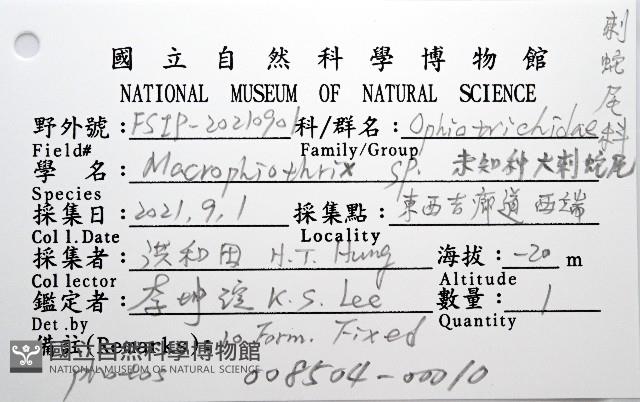 國立自然科學博物館
NATIONAL MUSEUM OF NATURAL SCIENCE
刺蛇尾科
野外號:FSIP-20210901 科/群名:Ophiotrichidae
Field# Family/Group
學 名:Macrophiothrix sp. 未知種大刺蛇尾
Species
採集日:2021,9,1 採集點:東西吉廊道西端
Coll.Date Locality
採集者:洪和田 H.T. Hung 海拔:-20 m
Collector Altitude
鑑定者:李坤瑄 K.S. Lee 數量:1
Det.by Quantity
備註(Remarks): Form. Fixed
photos 008504-00010
國立自然科學博物館
NATIONAL MUSEUM OF NATURAL SCIENCE